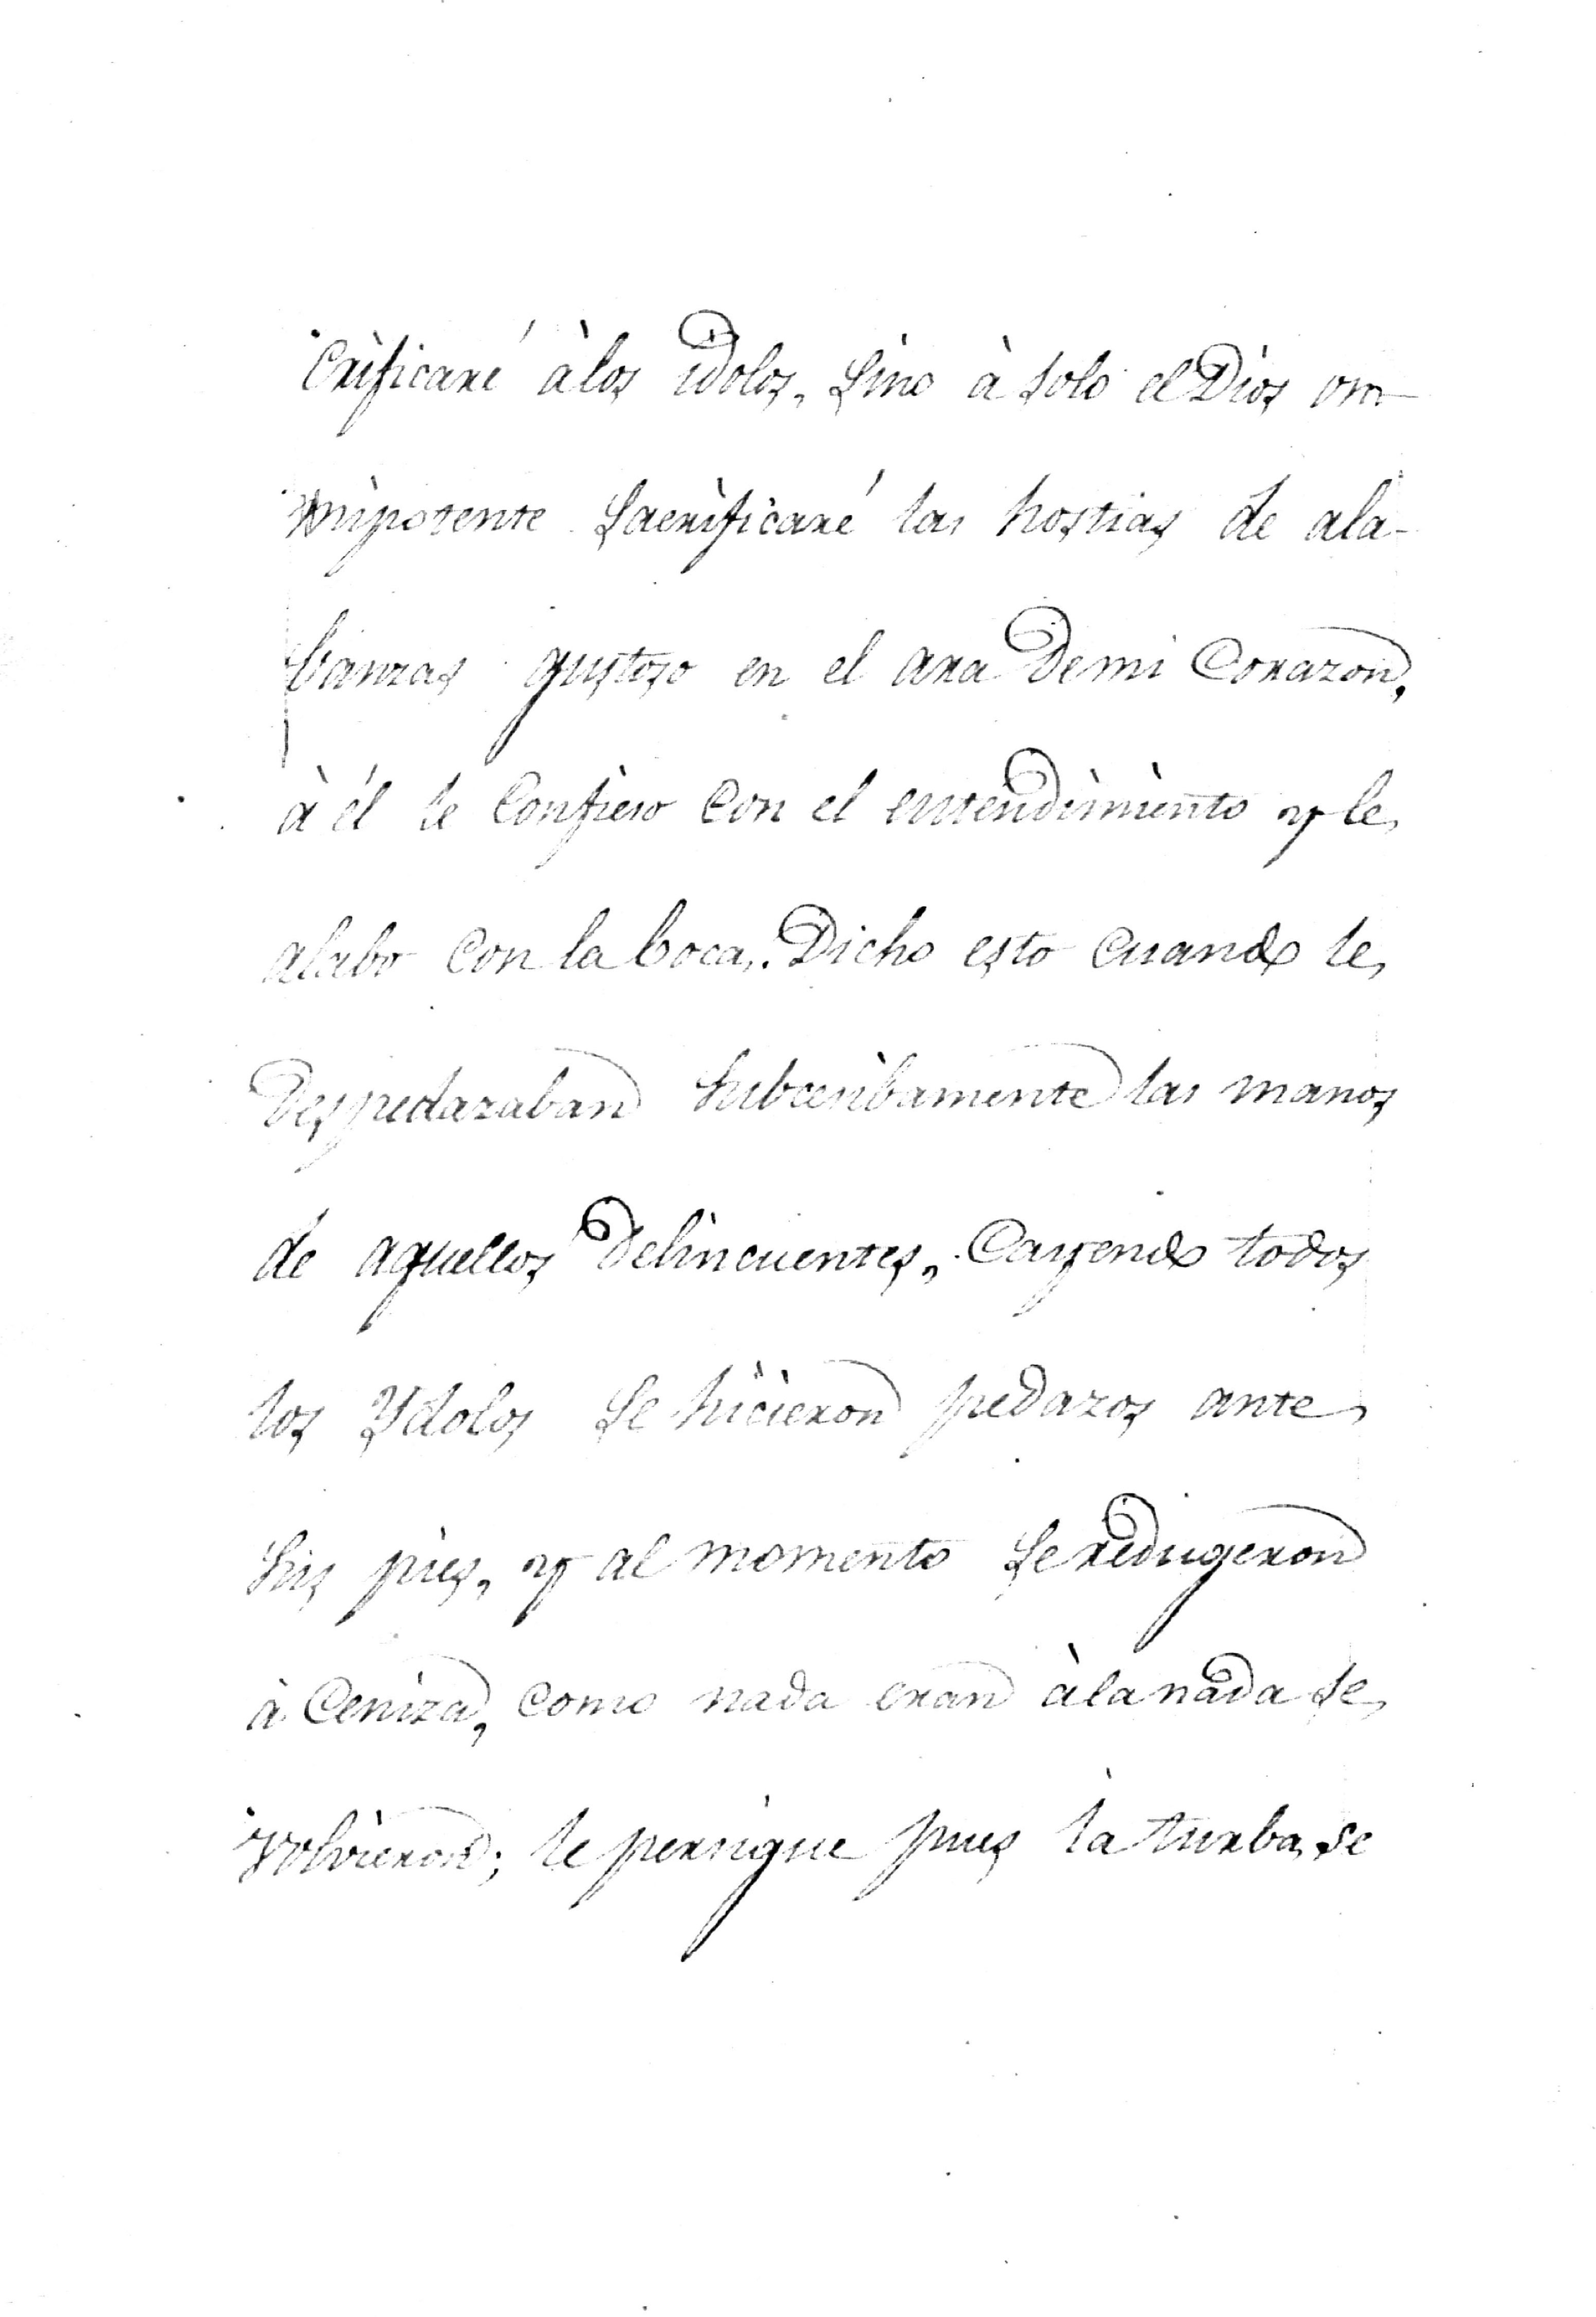 crificaré à los idolos, sino à solo el Dios om-
mipotente sacrificaré las hostias de ala-
banzas gustoso en el ara de mi Corazon,
à él le Confieso Con el entendimiento y le
alabo Con la boca. Dicho esto cuando le
Despedazaban las manos
de aquellos Delincuentes, Cayendo todos
los Ydolos se hicieron pedazos ante
sus pies, y al momento se redugeron
à Ceniza, como nada eran à la nada se
volvieron; le persigue pues la turba, se